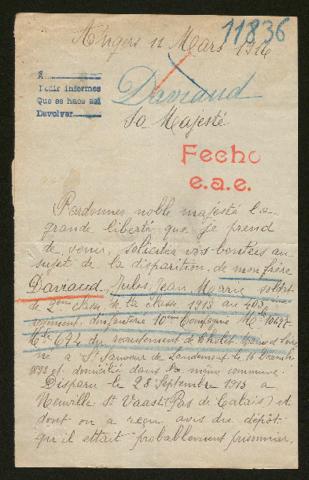 Angers 11 Mars 1916
11836
A
Pedir informes
Que se haos sal
Devolver
Davraud
Sa Majesté
Fecho
e.a.e.
Pardonnez noble majesté la
grande liberté que je prend
de venir solliciter vos bontées au
sujet de la disparition, de mon frère
Davraud, Jules Jean Marie soldat
de 2eme classe de la classe 1913 au 403
regiment, d'infanterie 10eme Compagnie Mle 10497
Mle 694 du recrutement de Cholet
né a St Sauveur de Landemont le 18
1893 et domicilié dans la même commune.
Disparu le 28 Septembre 1915 a
Neuville St Vaast (Pas de Calais) et
dont on a reçu avis du dépôt
qu'il ettait probablement prisonnier.